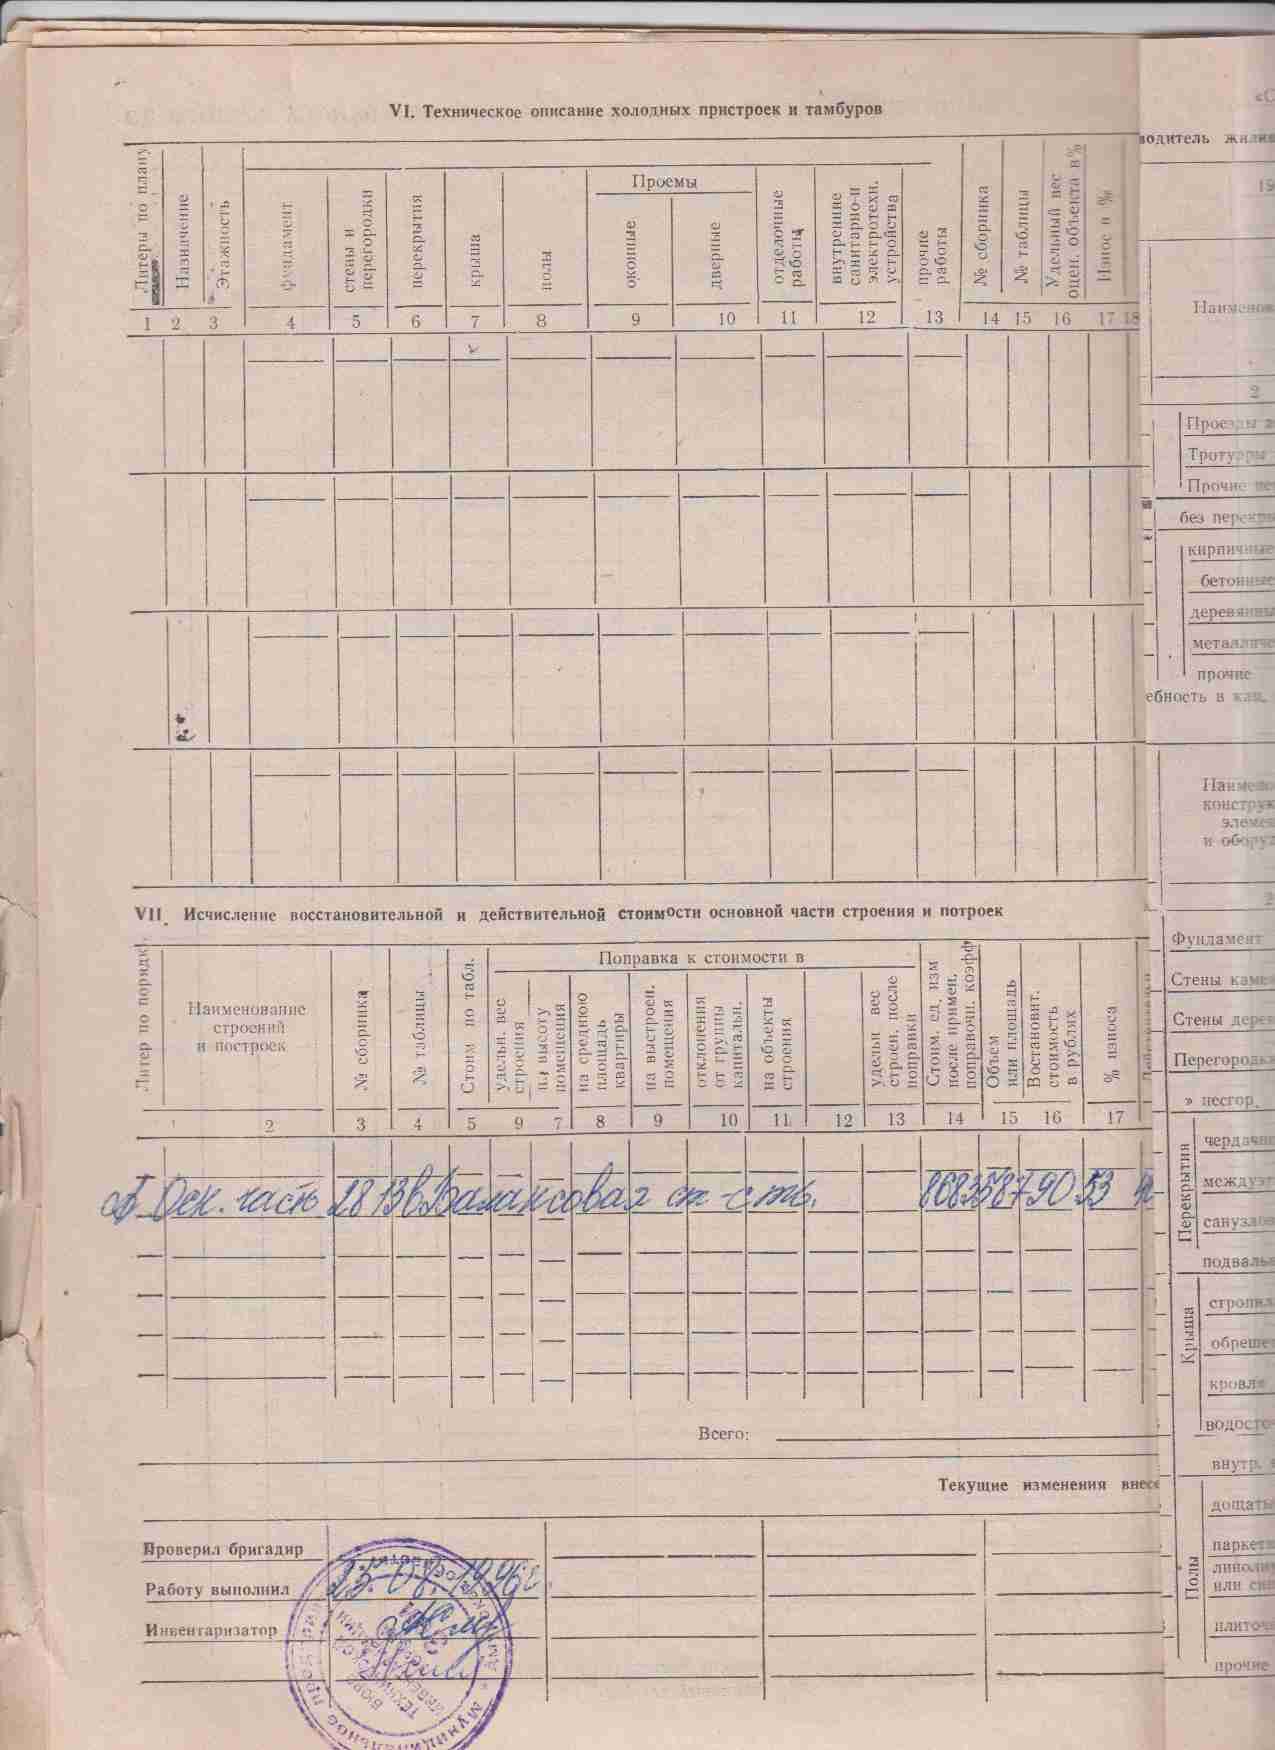 VI. Техническое описание холодных пристроек и тамбуров
Литеры по плану
Назначение
Этажность
фундамент
стены и
перегородки
перекрытия
крыша
полы
Проемы
оконные
дверные
отделочные
работы
внутренние
санитарно-и
электротехн.
устройства
прочие
работы
№ сборника
№ таблицы
Удельный вес
оцен. объекта в %
Износ в %
1 2 3 4 5 6 7 8 9 10 11 12 13 14 15 16 17 18
VII. Исчисление восстановительной и действительной стоимости основной части строения и потроек
Литер по порядк
Наименование
строений
и построек
№ сборника
№ таблицы
Стоим по табл.
Поправка к стоимости в
удельн. вес
строения
на высоту
помещения
на среднюю
площадь
квартиры
на выстроен.
помещения
отклонения
от группы
капитальн.
на объекты
строения
удельн вес
строен. после
поправки
Стоим. ед. изм
после примен.
поправочн. коэфф
Объем
или площадь
Востановит.
стоимость
в рублях
% износа
1 2 3 4 5 9 7 8 9 10 11 12 13 14 15 16 17
Осн. часть 28 13в Балансовая ст-сть.
Всего:
Текущие изменения внесе
Проверил бригадир
Работу выполнил
Инвентаризатор
водитель жилищ
19
Наименов
2
Проезды
Тротуары
Прочие
без перекры
кирпичные
бетонные
деревянны
металличе
прочие
ебность в кап.
Наимено
конструк
элемен
и оборуд
2
Фундамент
Стены каме
Стены дерев
Перегородк
» несгор.
Перекрытия
чердачн
междуэт
санузлов
подваль
Крыша
стропил
обреше
кровля
водосто
внутр.
Полы
дощаты
паркетн
линолиу
или син
плиточ
прочие